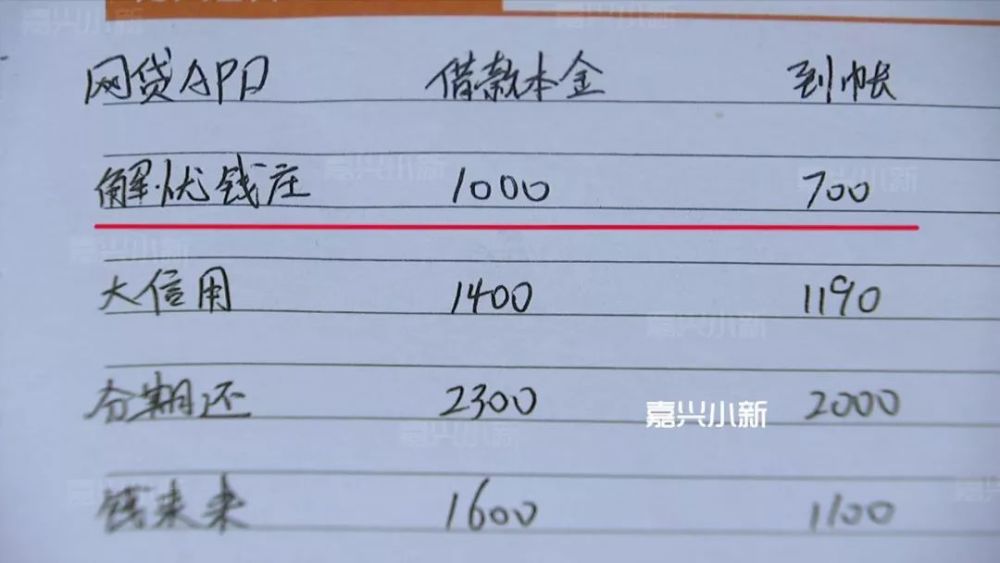 嘉兴小新
网贷APP 借款本金 到帐
解忧钱庄 1000 700
大信用 1400 1190
分期还 2300 2000
嘉兴小新
钱来来 1600 1100